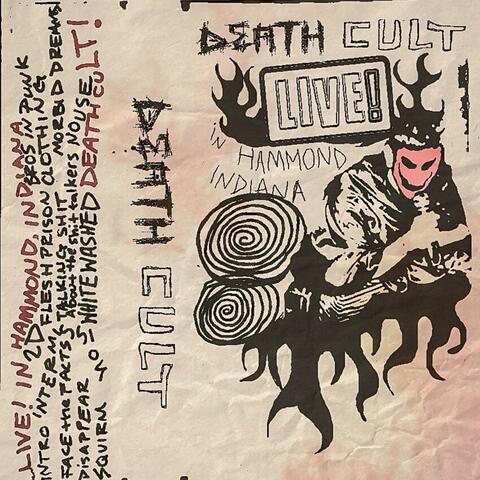 DEATH CULT
LIVE!
in HAMMOND
INDIANA
DEATH CULT
LIVE! IN HAMMOND, INDIANA
INTRO INTERM 2D BROS IN PUNK
FLESH PRISON CLOTHING
FACE the FACTS TALKING SHIT MORBID DREAMS
About the shit talkers NO USE
DISAPPEAR WHITEWASHED DEATH CULT!
SQUIRM